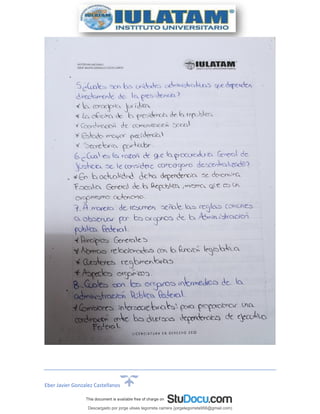 IULATAM
INSTITUTO UNIVERSITARIO
IULATAM
5.¿Cuales son las unidades administrativas que dependen
directamente de la presidencia?
* la consejeria juridica
* La oficina de la presidencia de la republica
* Coordinación de comunicación social
* Estado mayor presidencial
* Secretaria particular.
6.¿Cual es la razon de que la procuraduria General de
Justicia se le considere como organo descentralizado?
* En la actualidad dicha dependencia se denomina
Fiscalia General de la Republica, misma que es un
organismo autonomo.
7. A manera de resumen señale las reglas comunes
a observar por los organos de la Administración
publica Federal.
* Principios Generales
* Normas relacionadas con la función legislativa
* Cuestiones reglamentarias
* Aspectos organicos.
8. Cuales son los organos intermedios de la
administración Pública Federal.
* Comisiones intersecretariales para proporcionar una
cordinación ante las diversas dependencias de ejecutivo
Federal.
LICENCIATURA EN DERECHO 2020
Eber Javier Gonzalez Castellanos
This document is available free of charge on
StuDocu.com
Descargado por jorge ulises lagorreta carrera (jorgelagorreta956@gmail.com)